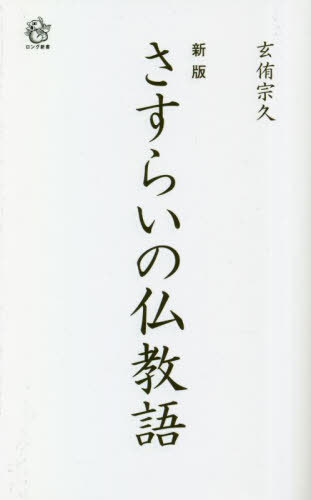 玄侑宗久
新版
さすらいの仏教語
ロング新書